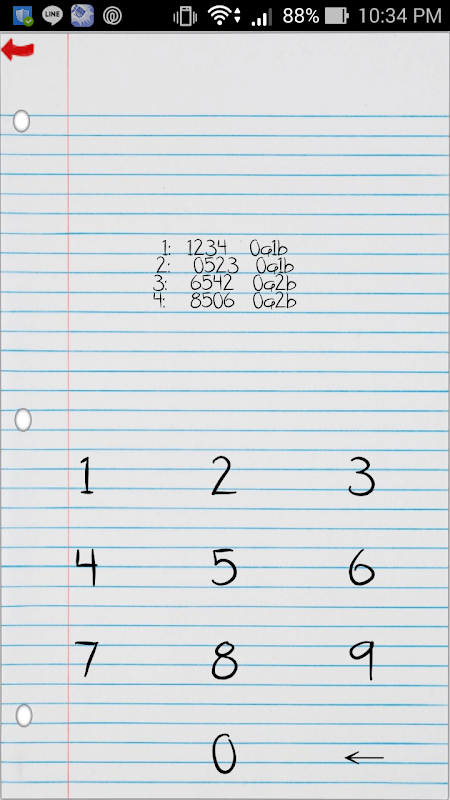 LINE
88% 10:34 PM
1: 1234 0a1b
2: 0523 0a1b
3: 6542 0a2b
4: 8506 0a2b
1 2 3
4 5 6
7 8 9
0 ←